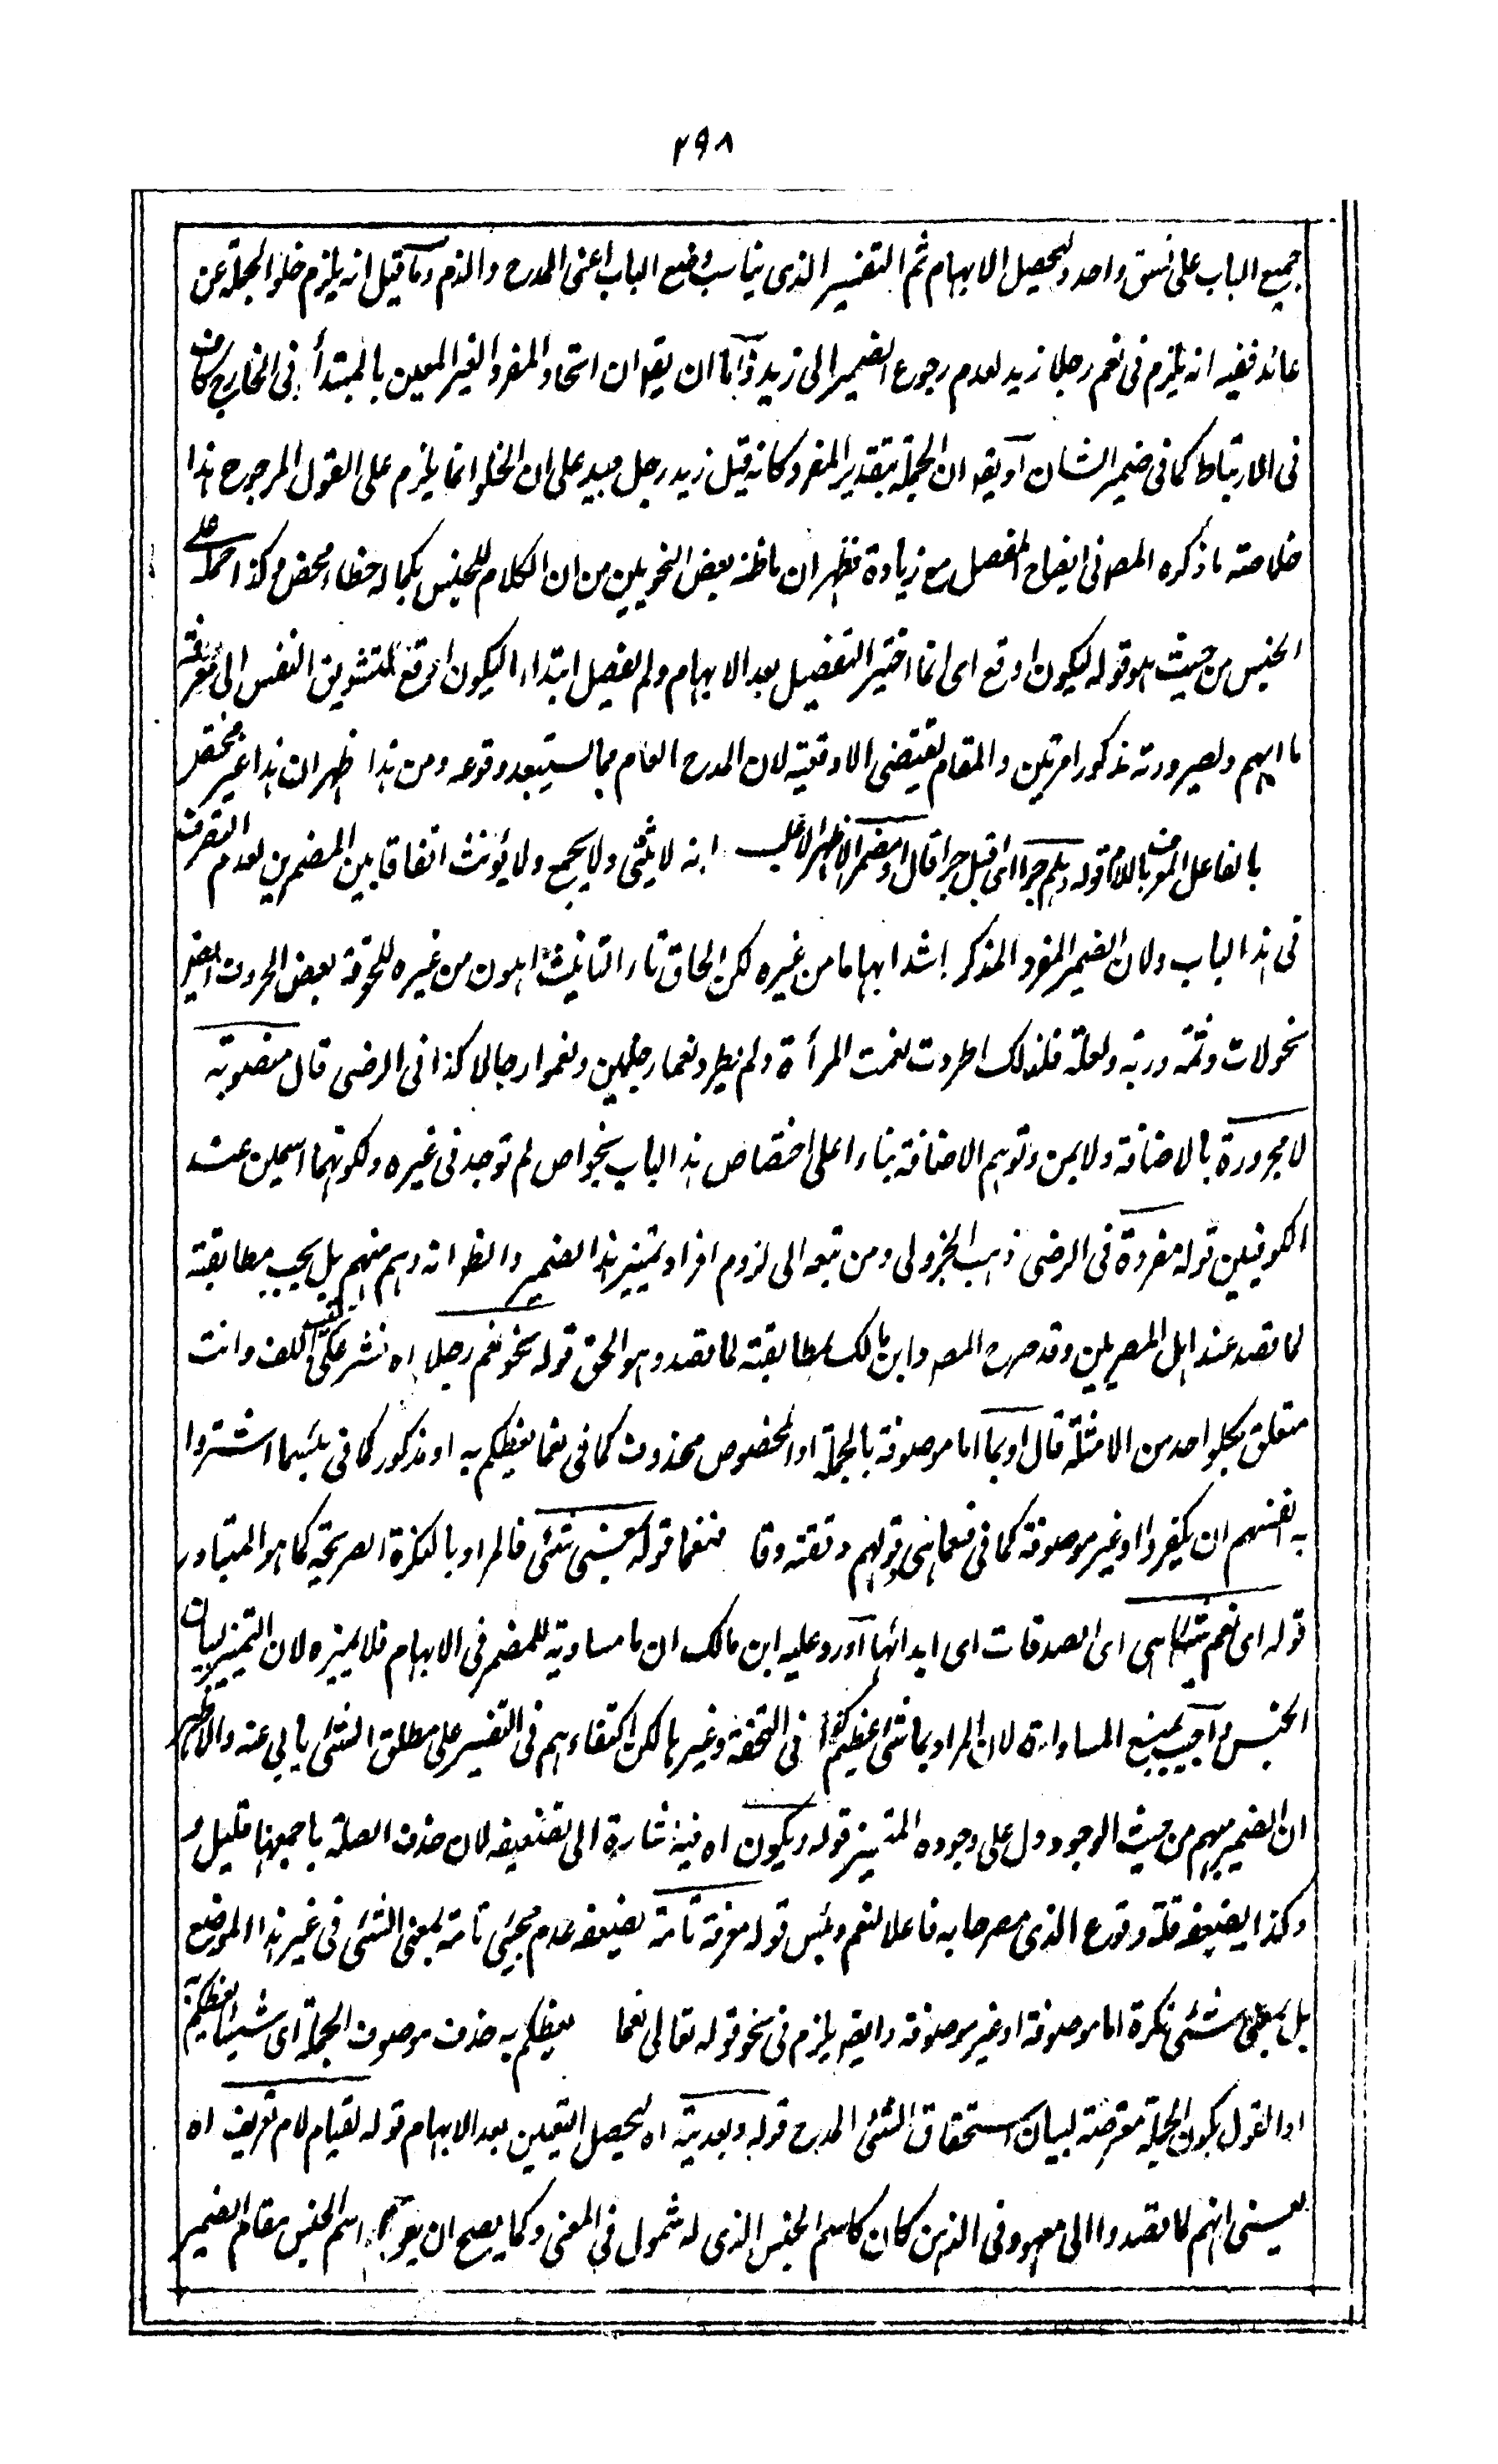 ۲۹۸
جميع الباب على نسق واحد وليحصل الابهام ثم التفسير الذى يناسب وضع الباب اعنى المدح والذم وما قيل انه يلزم خلو الجملة عن
عائد ففيه انه يلزم فى نعم رجلا زيد لعدم رجوع الضمير الى زيد فاما ان يقو ان اتحاد المفرد الغير المعين بالمبتدأ فى الخارج كاف
فى الارتباط كما فى ضمير الشان او يقو ان الجملة بتقدير المفرد كانه قيل زيد رجل جيد على ان الخلو انما يلزم على القول المرجوح هذا
خلاصة ما ذكره المصه فى ايضاح المفصل مع زيادة فظهر ان ما ظنه بعض النحويين من ان اللام للجنس بكماله خطاء محض وكذا حمله على
الجنس من حيث هو قوله ليكون اوقع اى انما اختير التفصيل بعد الابهام ولم يفصل ابتداء ليكون اوقع لتشويق النفس الى معرفة
ما ابهم ولصيرورته مذكورا مرتين والمقام يقتضى الاوقعية لان المدح العام مما يستبعد وقوعه ومن هذا ظهر ان هذا غير مختص
بالفاعل المعرف باللام قوله وهلم جرا اى قبل جرا قال او مضمرا الاظهر الاغلب انه لا يثنى ولا يجمع ولا يؤنث اتفاقا بين المضمرين لعدم التصرف
فى هذا الباب ولان الضمير المفرد المذكر اشد ابهاما من غيره لكن الحاق تاء التانيث اهون من غيره للحوقه بعض الحروف ايضا
نحو لات وثمة وربة ولعلة فلذلك اطردت نعمت المرأة ولم يطرد نعما رجلين ونعموا رجالا كذا فى الرضى قال منصوبة
لا مجرورة بالاضافة ولا بمن وتوهم الاضافة بناء على اختصاص هذا الباب بخواص لم توجد فى غيره ولكونهما اسمين عند
الكوفيين قوله مفردة فى الرضى ذهب الجزولى ومن تبعه الى لزوم افراد تمييز هذا الضمير والظ انه وهم منهم بل يجب مطابقته
لما قصد عند اهل المصرين وقد صرح المصه وابن مالك بمطابقته لما قصد وهو الحق قوله نحو نعم رجلا اه نشر على اللف وانت
متعلق بكل واحد من الامثلة قال او بما اما موصوفة بالجملة والمخصوص محذوف كما فى نعما يعظكم به او مذكور كما فى بئسما اشتروا
به انفسهم ان يكفروا او غير موصوفة كما فى فنعما هى وقولهم دققته دقا نعما قوله بمعنى شئ فالمراد بالنكرة الصريحة كما هو المتبادر
قوله اى نعم شيئا هى اى الصدقات اى ابدائها اورد عليه ابن مالك ان ما مساوية للمضمر فى الابهام فلا يميزه لان التمييز لبيان
الجنس واجيب بمنع المساواة لان المراد بما شئ عظيم كذا فى التحفة وغيرها لكن اكتفاءهم فى التفسير على مطلق الشئ يابى عنه والاظهر
ان الضمير مبهم من حيث الوجود دل على وجوده المتميز قوله ويكون اه فيه اشارة الى تضعيفه لان حذف الصلة باجمعها قليل
وكذا يضعفه قلة وقوع الذى مصرحا به فاعلا لنعم وبئس قوله معرفة تامة يضعفه عدم مجيئ تامة بمعنى الشئ فى غير هذا الموضع
بل بمعنى شئ نكرة اما موصوفة او غير موصوفة وايضا يلزم فى نحو قوله تعالى نعما يعظكم به حذف موصوف الجملة اى شيئا يعظكم به
او القول بكون الجملة معترضة لبيان استحقاق الشئ المدح قوله وبعديته اه ليحصل التعيين بعد الابهام قوله لقيام لام تعريف اه
يعنى انهم لما قصدوا الى معهود فى الذهن كان كاسم الجنس الذى له شمول فى المعنى وكما يصح ان يقوم اسم الجنس مقام الضمير